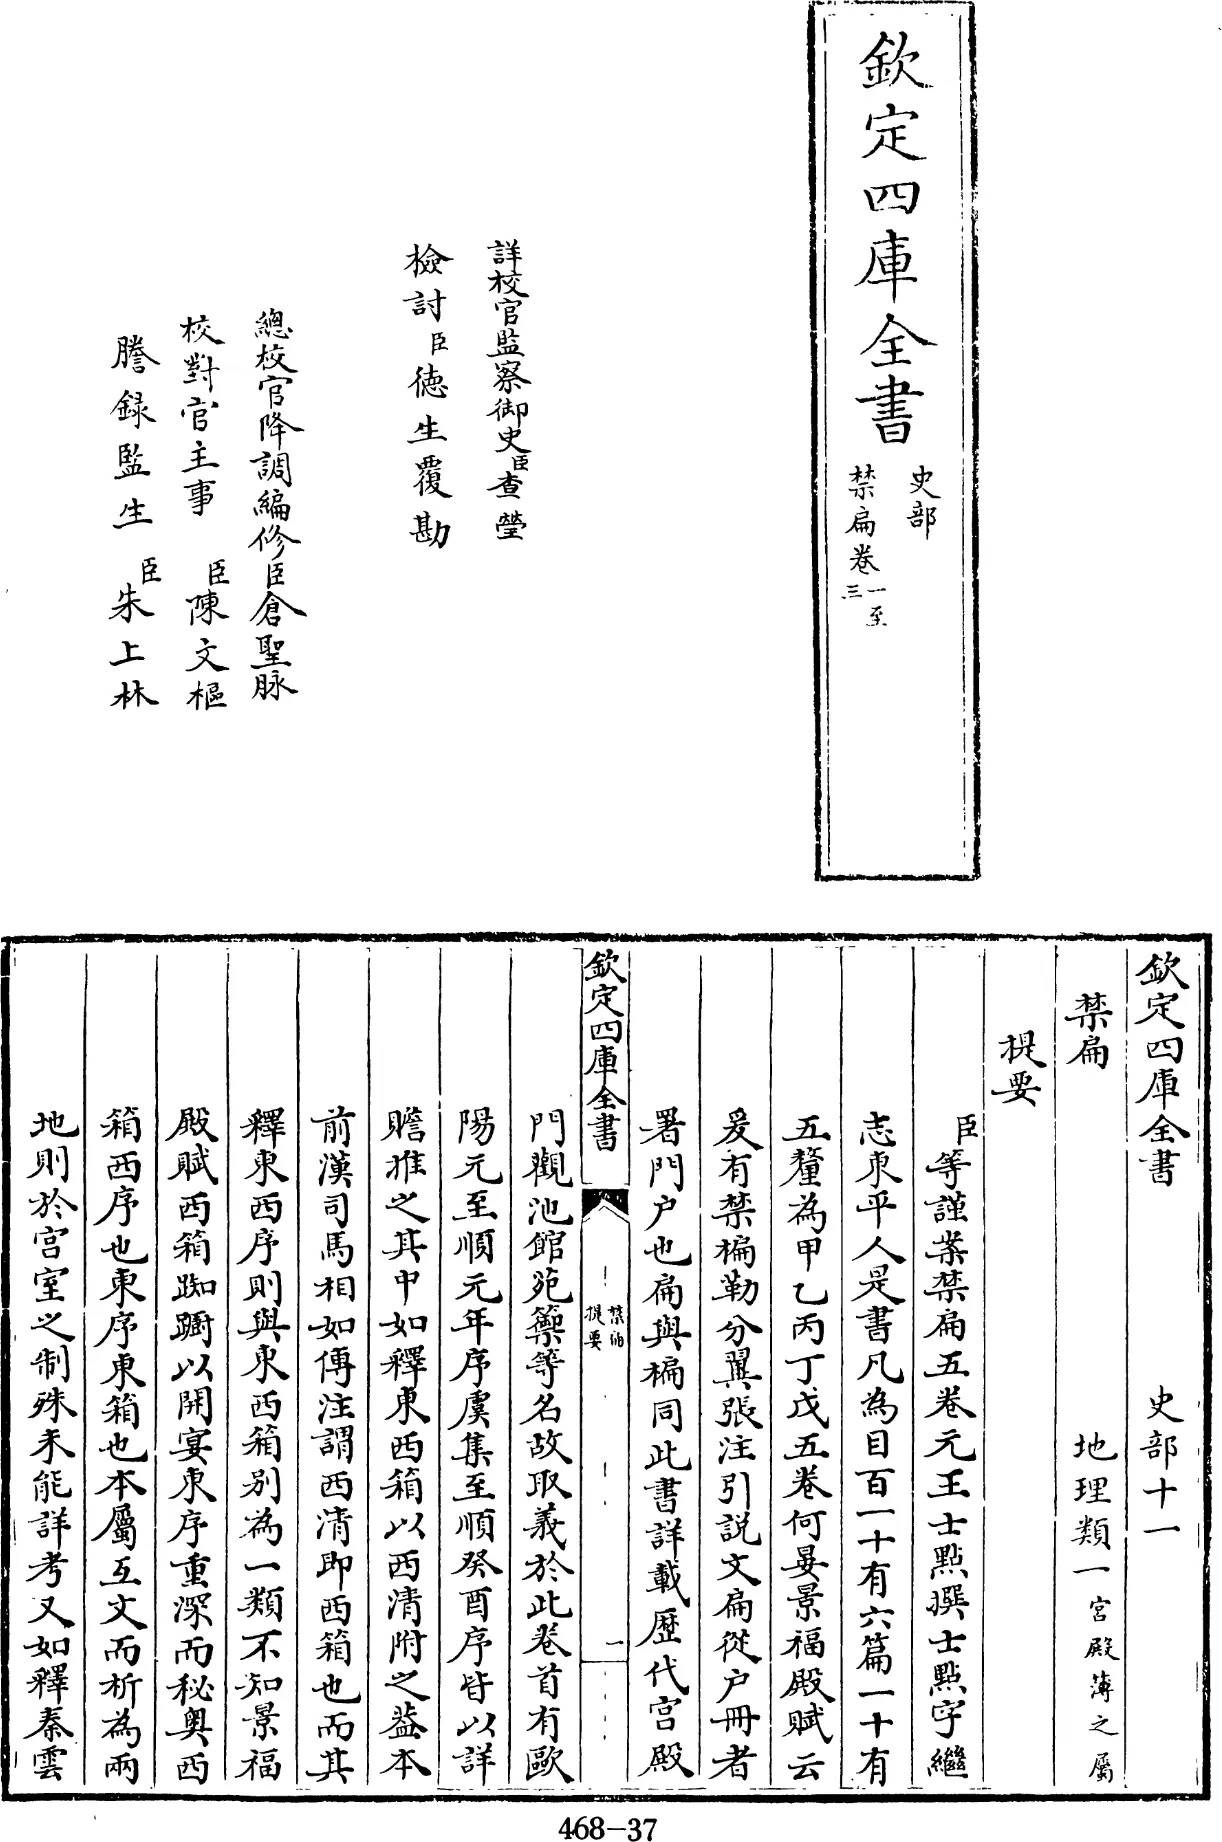 欽定四庫全書
史部
禁扁卷一至三
詳校官監察御史臣查瑩
檢討臣德生覆勘
總校官降調編修臣倉聖脉
校對官主事臣陳文樞
謄録監生臣朱上林
欽定四庫全書　史部十一
禁扁　地理類一宫殿薄之屬
提要
臣等謹案禁扁五卷元王士㸃撰士㸃字繼
志東平人是書凡為目百一十有六篇一十有
五釐為甲乙丙丁戊五卷何晏景福殿賦云
爰有禁楄勒分翼張注引説文扁從户冊者
署門户也扁與楄同此書詳載歴代宫殿
欽定四庫全書
禁扁
提要
一
門觀池館苑籞等名故取義於此卷首有歐
陽元至順元年序虞集至順癸酉序皆以詳
贍推之其中如釋東西箱以西清附之葢本
前漢司馬相如傳注謂西清即西箱也而其
釋東西序則與東西箱别為一類不知景福
殿賦西箱踟蹰以開宴東序重深而秘奥西
箱西序也東序東箱也本屬互文而析為兩
地則於宫室之制殊未能詳考又如釋秦雲
468-37